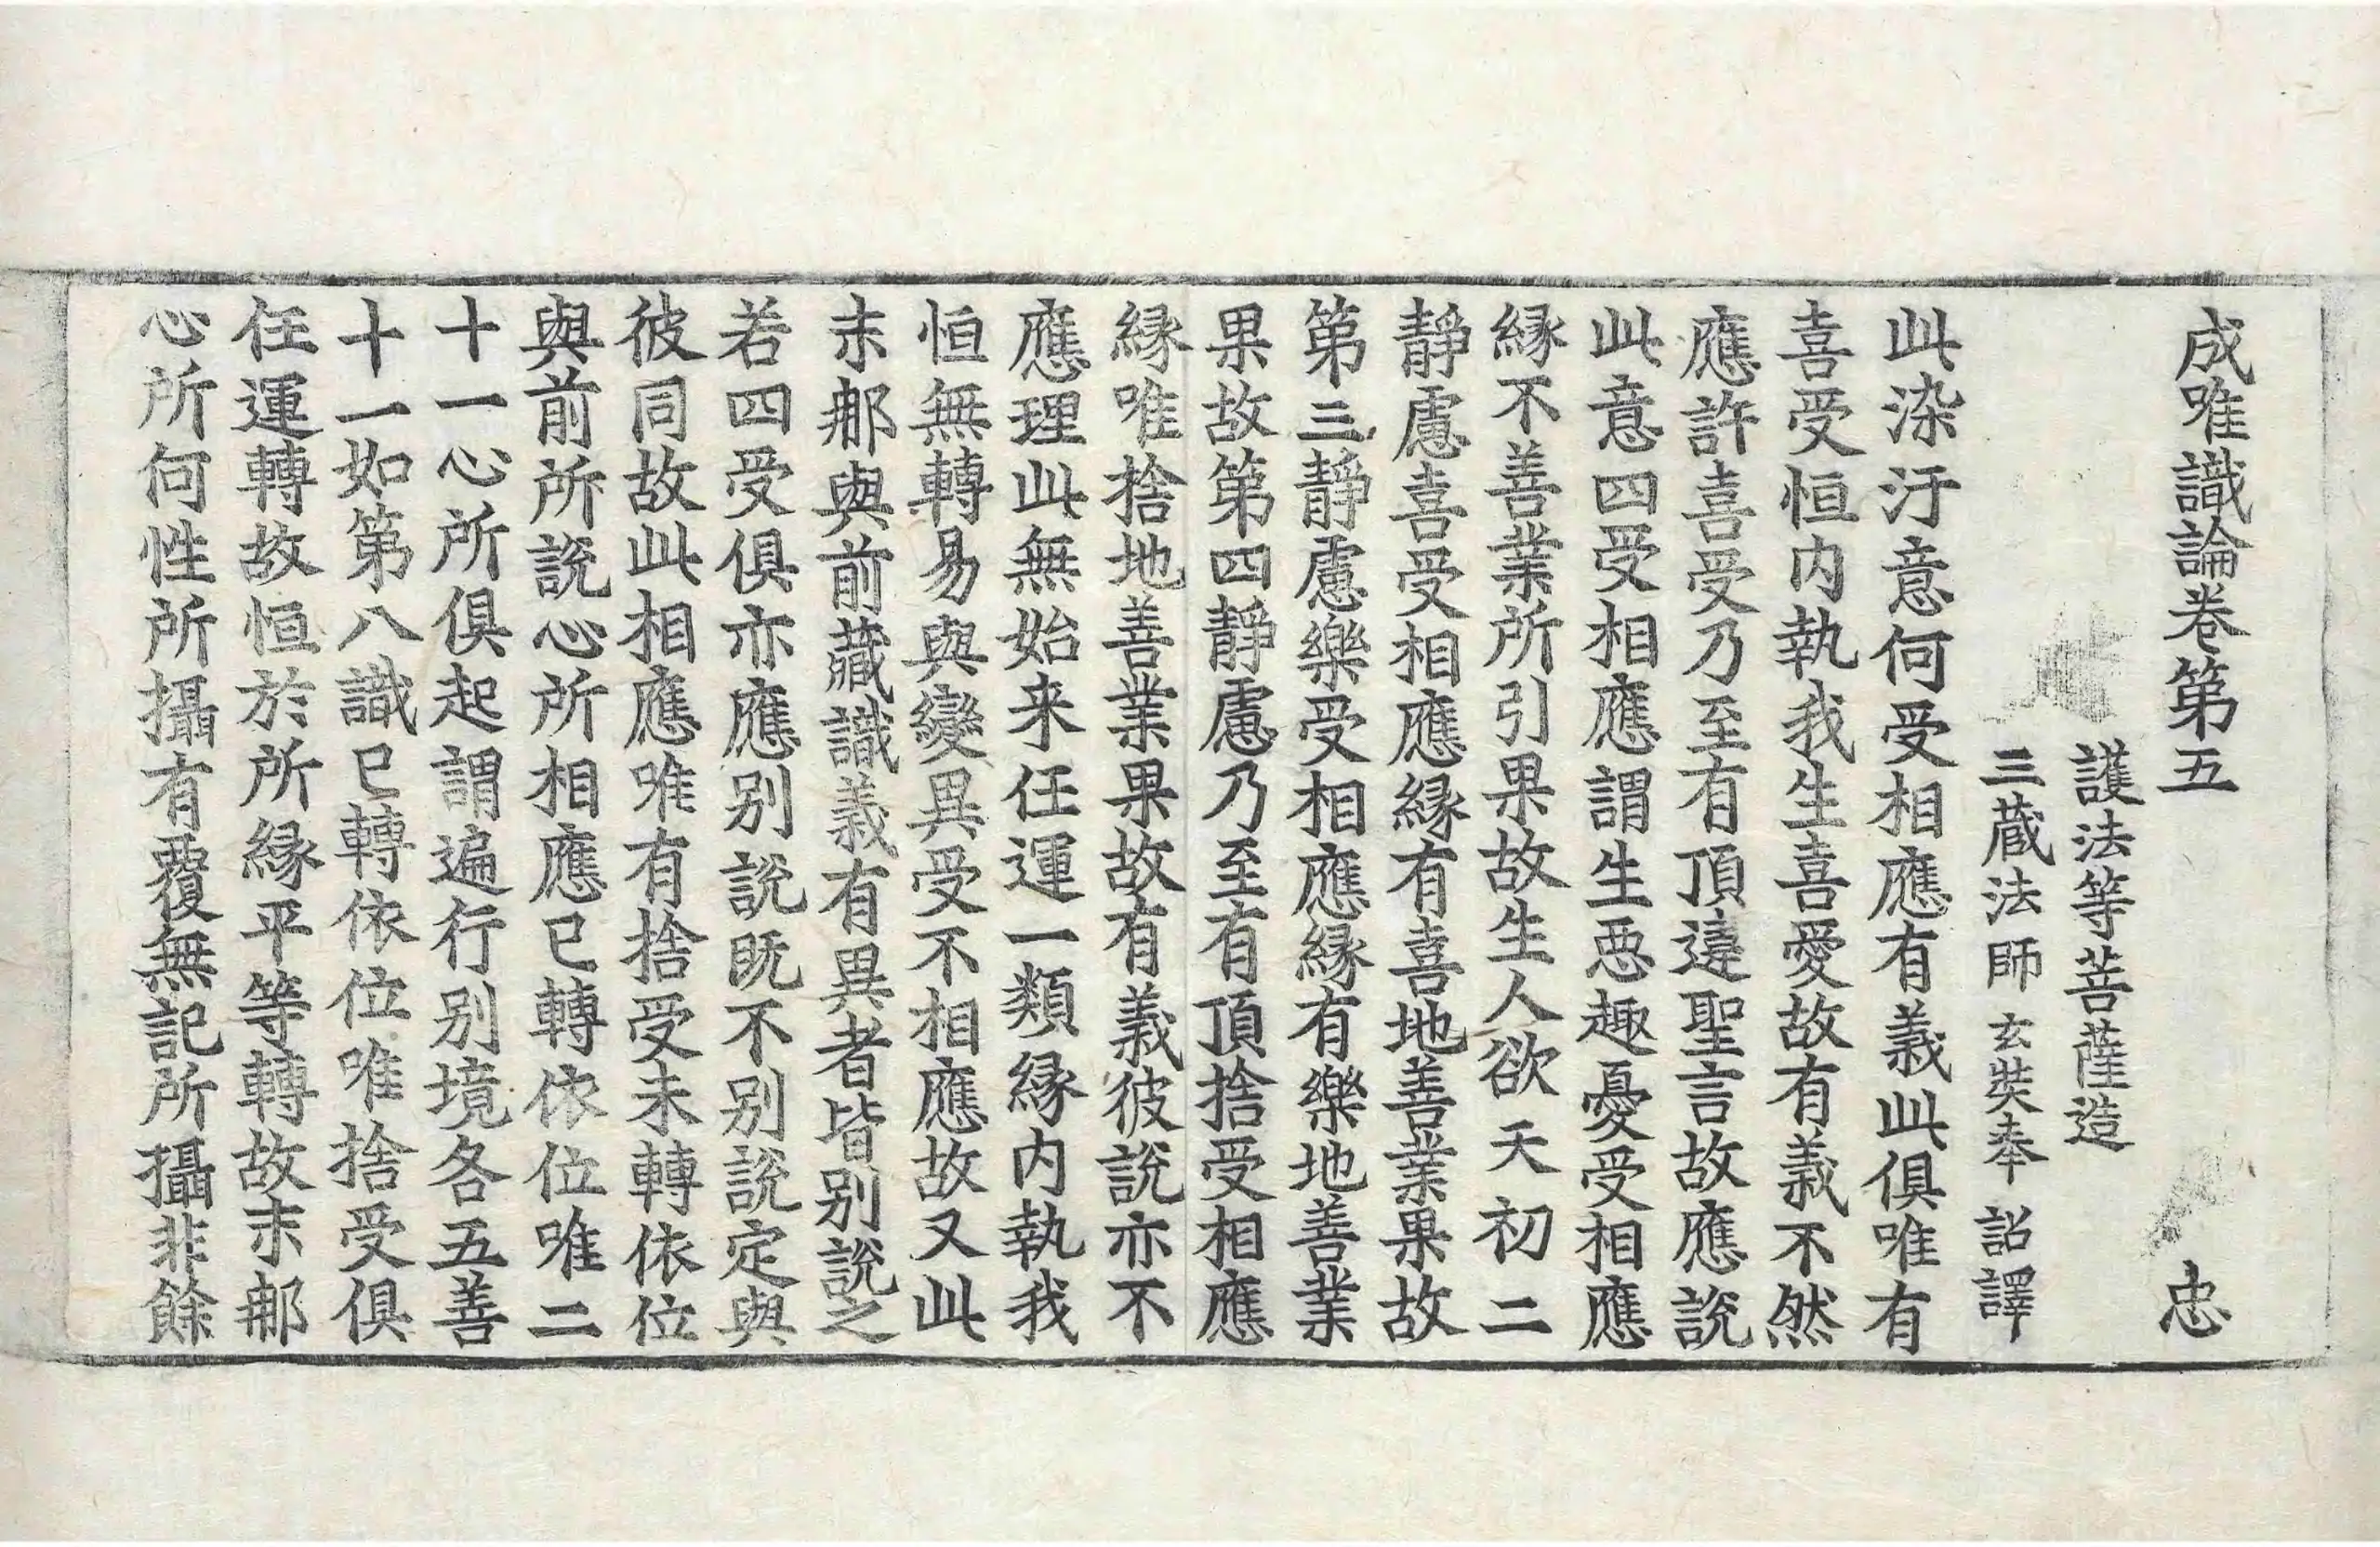 成唯識論卷第五　忠
護法等菩薩造
三蔵法師玄奘奉詔譯
此染汙意何受相應有義此俱唯有
喜受恒内執我生喜愛故有義不然
應許喜受乃至有頂違聖言故應説
此意四受相應謂生惡趣憂受相應
緣不善業所引果故生人欲天初二
靜慮喜受相應緣有喜地善業果故
第三靜慮樂受相應緣有樂地善業
果故第四靜慮乃至有頂捨受相應
緣唯捨地善業果故有義彼説亦不
應理此無始来任運一類緣内執我
恒無轉易與變異受不相應故又此
末那與前藏識義有異者皆别説之
若四受俱亦應别説既不别説定與
彼同故此相應唯有捨受未轉依位
與前所説心所相應已轉依位唯二
十一心所俱起謂遍行别境各五善
十一如第八識已轉依位唯捨受俱
任運轉故恒於所緣平等轉故末那
心所何性所攝有覆無記所攝非餘